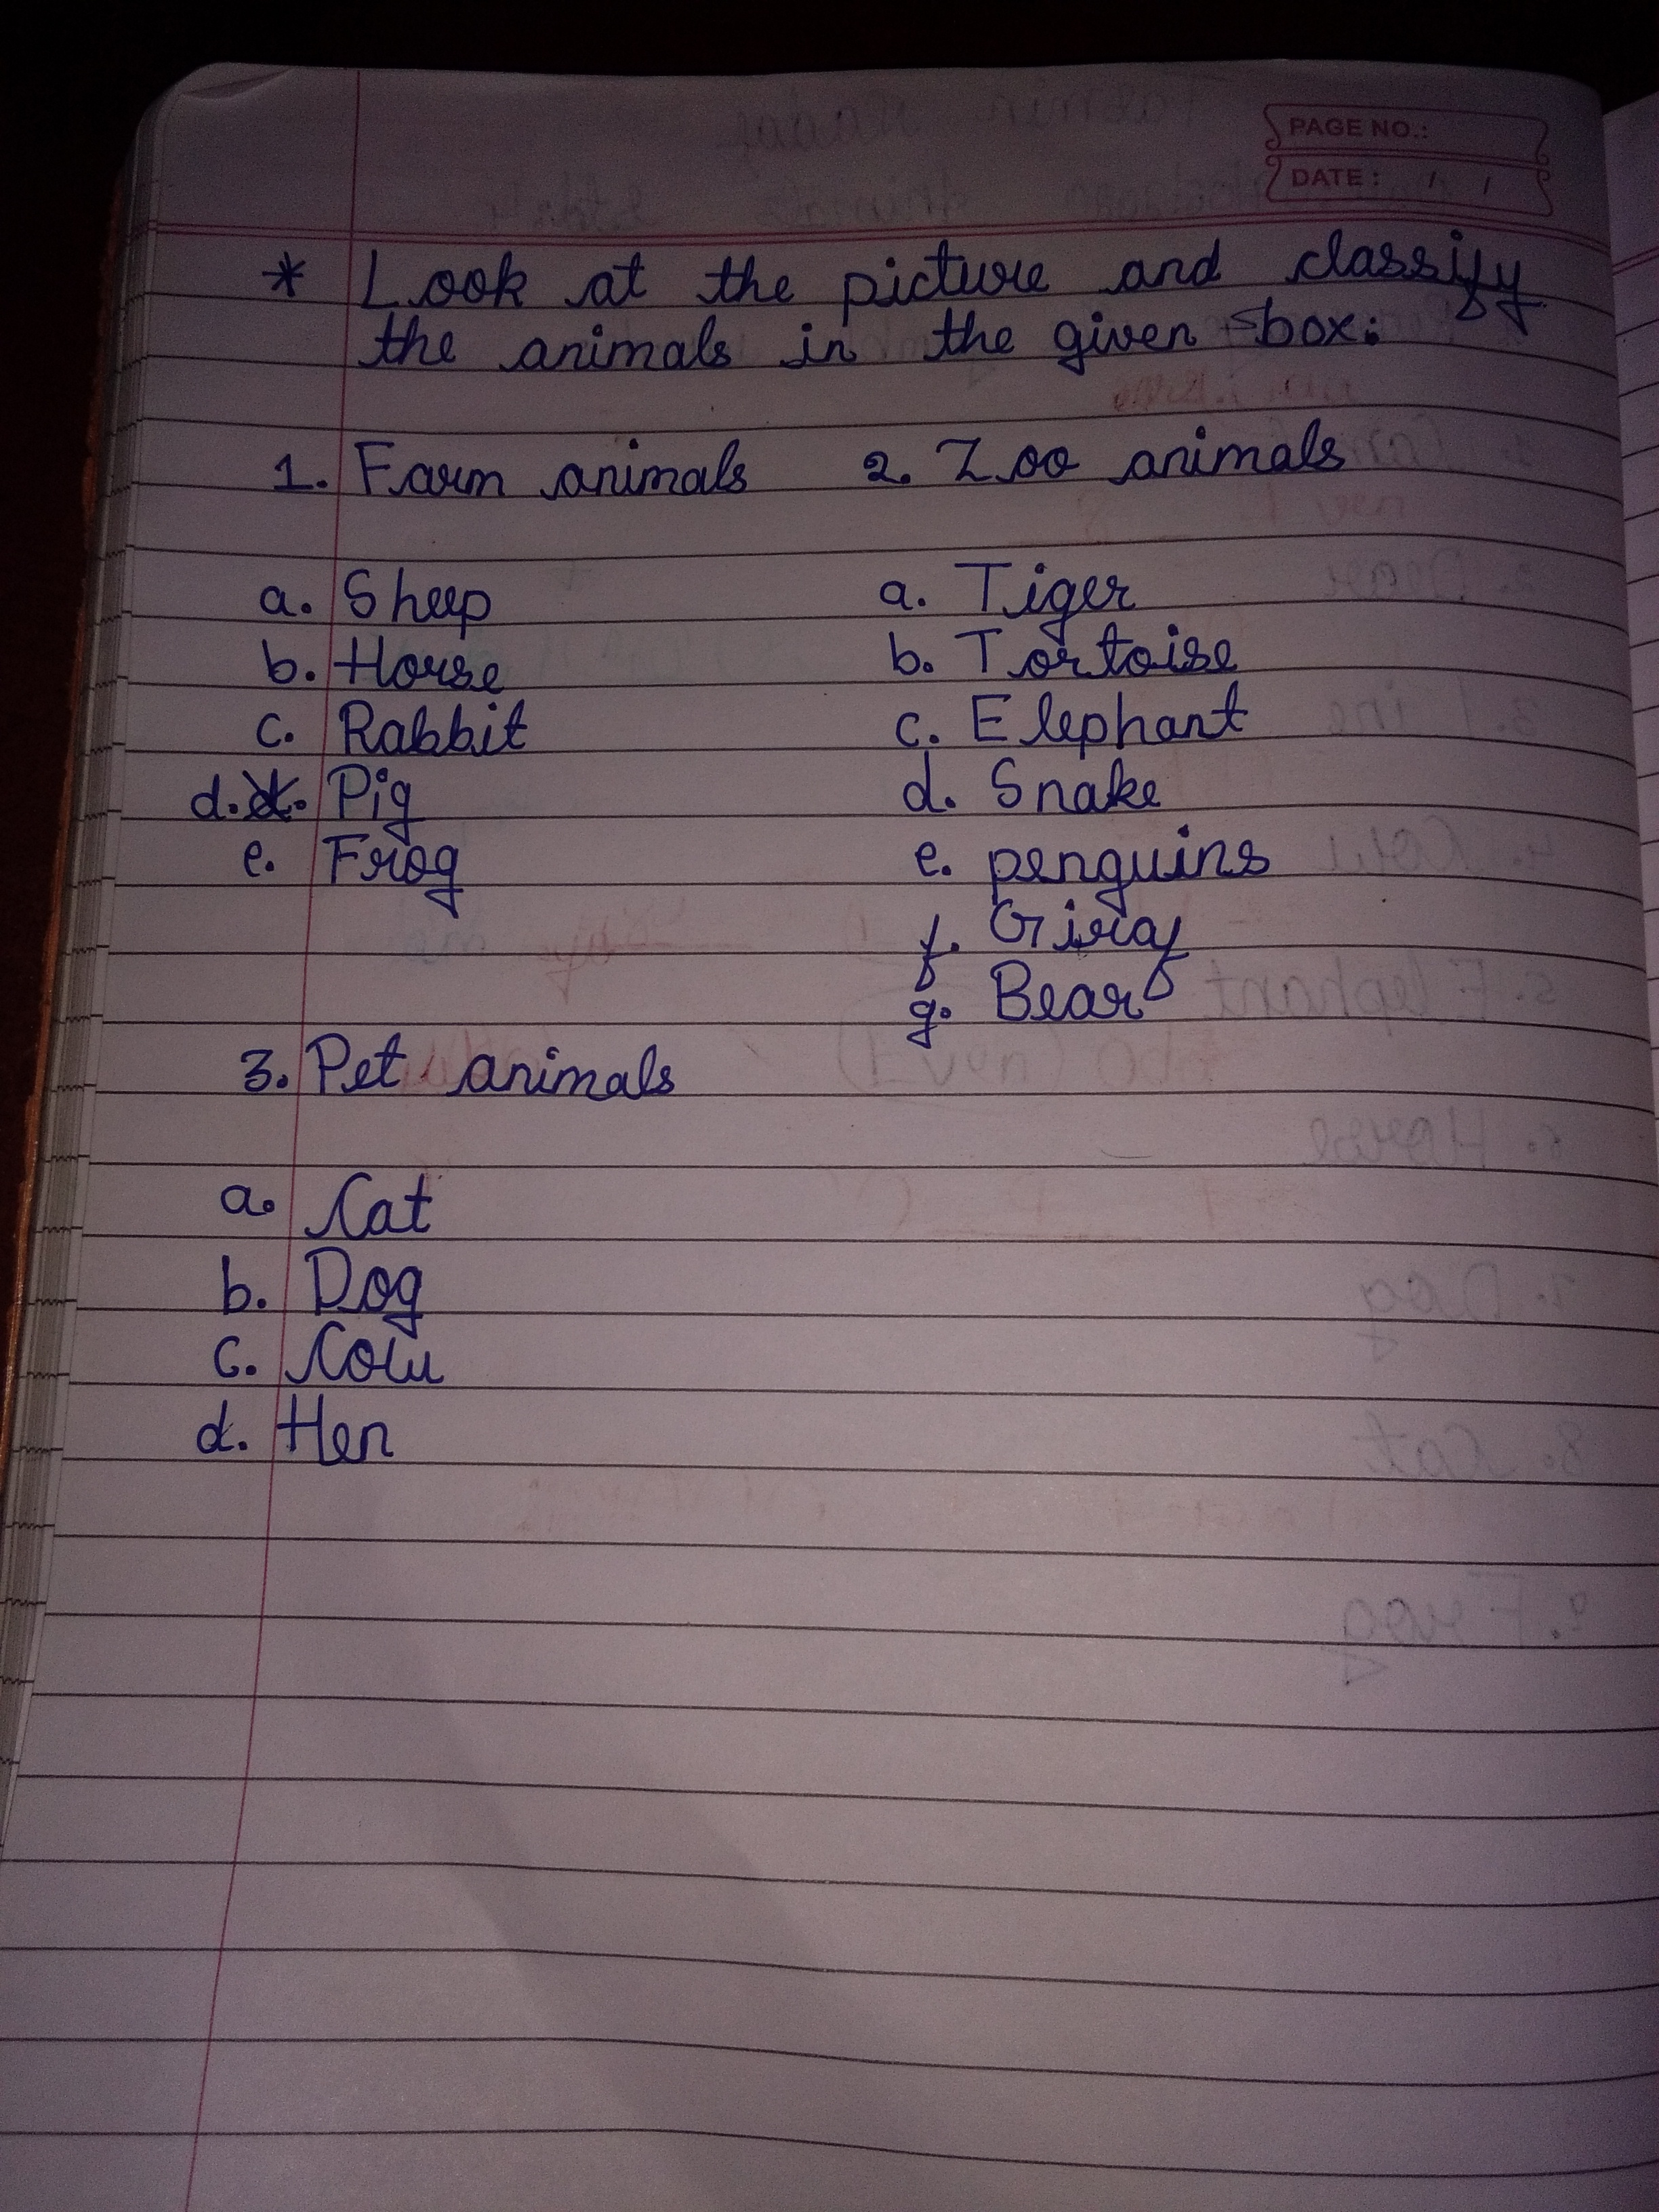 PAGE NO.:
DATE: / /
* Look at the picture and classify
the animals in the given box:
1. Farm animals 2. Zoo animals
a. Sheep a. Tiger
b. Horse b. Tortoise
c. Rabbit c. Elephant
d. Pig d. Snake
e. Frog e. penguins
f. Giraf
g. Bear
3. Pet animals
a. Cat
b. Dog
c. Cow
d. Hen